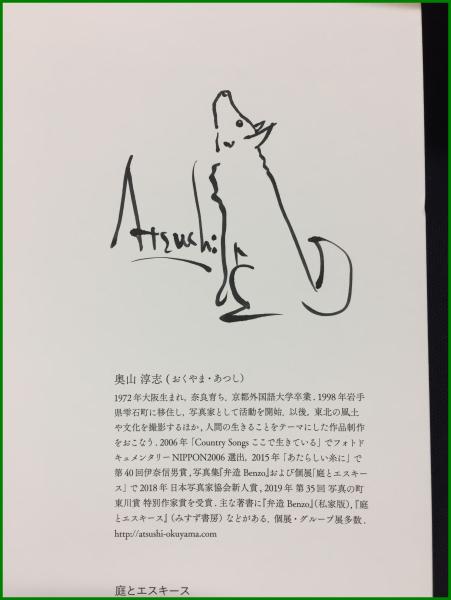 Atsushi
奥山 淳志 (おくやま・あつし)
1972年大阪生まれ, 奈良育ち, 京都外国語大学卒業. 1998年岩手
県雫石町に移住し, 写真家として活動を開始. 以後, 東北の風土
や文化を撮影するほか, 人間の生きることをテーマにした作品制作
をおこなう. 2006年「Country Songs ここで生きている」でフォトド
キュメンタリーNIPPON2006 選出, 2015年「あたらしい糸に」で
第40回伊奈信男賞, 写真集『弁造 Benzo』および個展「庭とエスキー
ス」で2018年日本写真家協会新人賞, 2019年 第35回 写真の町
東川賞 特別作家賞を受賞. 主な著書に『弁造 Benzo』(私家版),『庭
とエスキース』(みすず書房) などがある. 個展・グループ展多数.
http://atsushi-okuyama.com
庭とエスキース